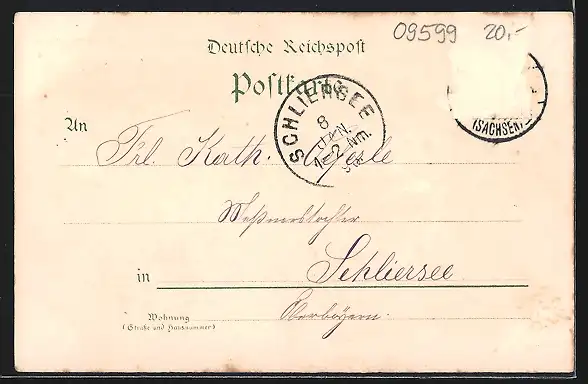 09599 20,-
Deutsche Reichspost
Postkarte
SCHLIERSEE
8
JAN.
1-2 Nm.
98
(SACHSEN)
An
Frl. Kath.
Meßnerstochter
in Schliersee
Oberbayern.
Wohnung
(Straße und Hausnummer)